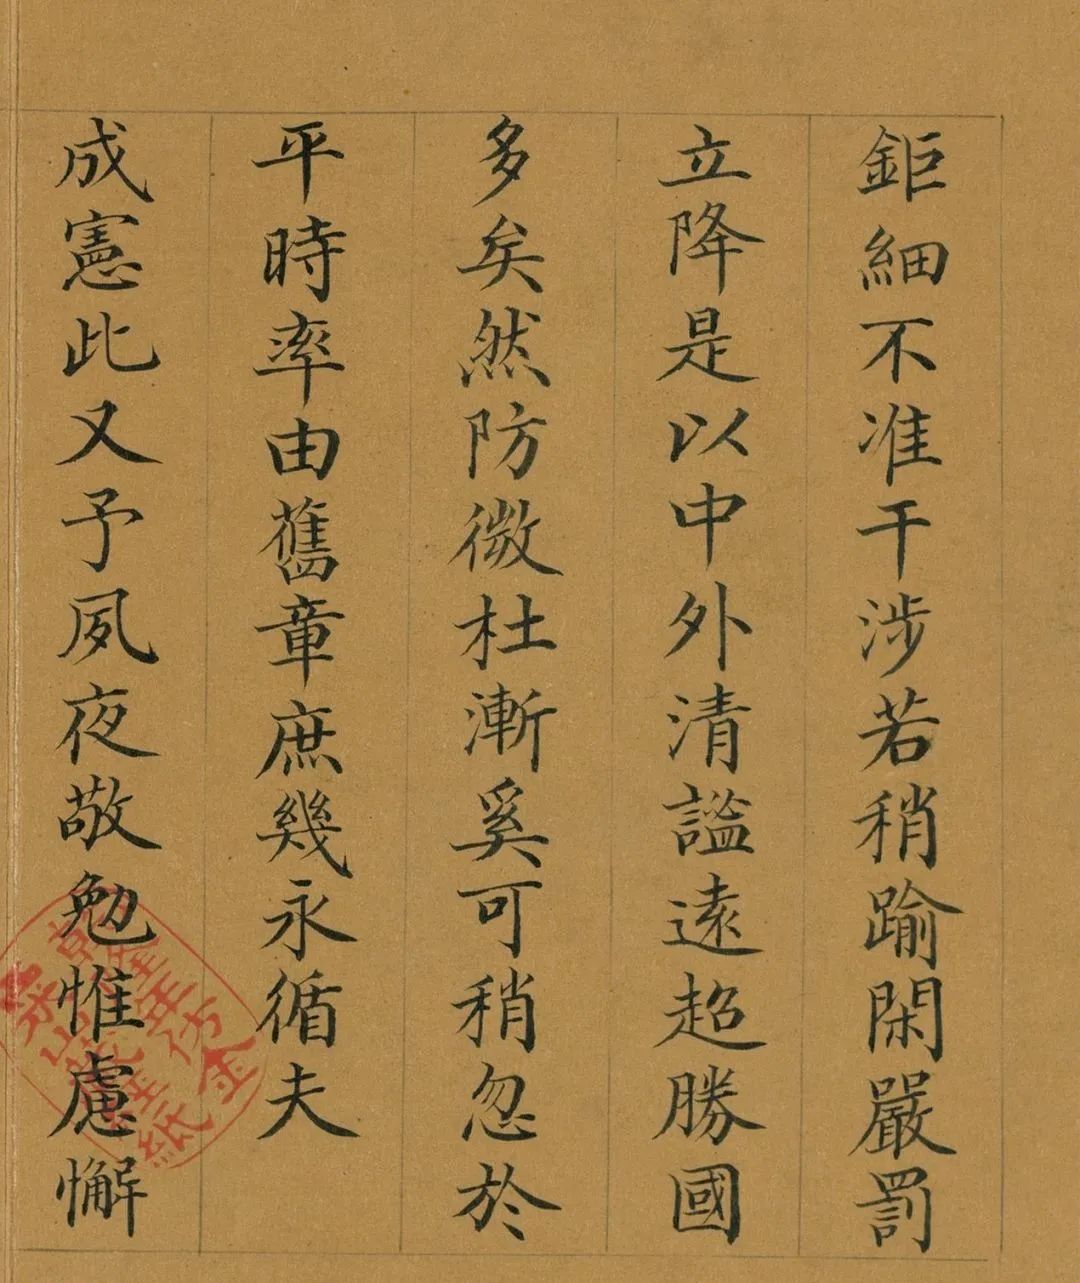 鉅細不准干涉若稍踰閑嚴罰
立降是以中外清謐遠超勝國
多矣然防微杜漸奚可稍忽於
平時率由舊章庶幾永循夫
成憲此又予夙夜敬勉惟慮懈